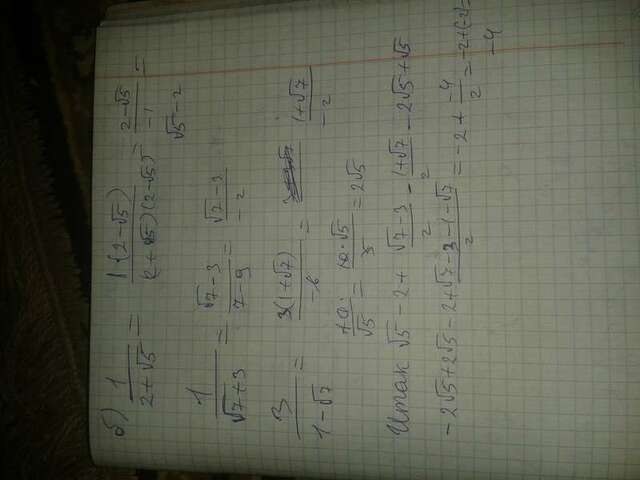 б) 1/(2+√5) = 1·(2-√5)/((2+√5)(2-√5)) = (2-√5)/(-1) =
√5-2
1/(√7+3) = (√7-3)/(7-9) = (√7-3)/(-2)
3/(1-√7) = 3(1+√7)/(-6) = (1+√7)/(-2)
10/√5 = 10·√5/5 = 2√5
Итак √5-2+ (√7-3)/2 - (1+√7)/2 -2√5+√5
-2√5+2√5-2+ (√7-3-1-√7)/2 = -2+ (-4)/2 = -2+(-2)=
-4